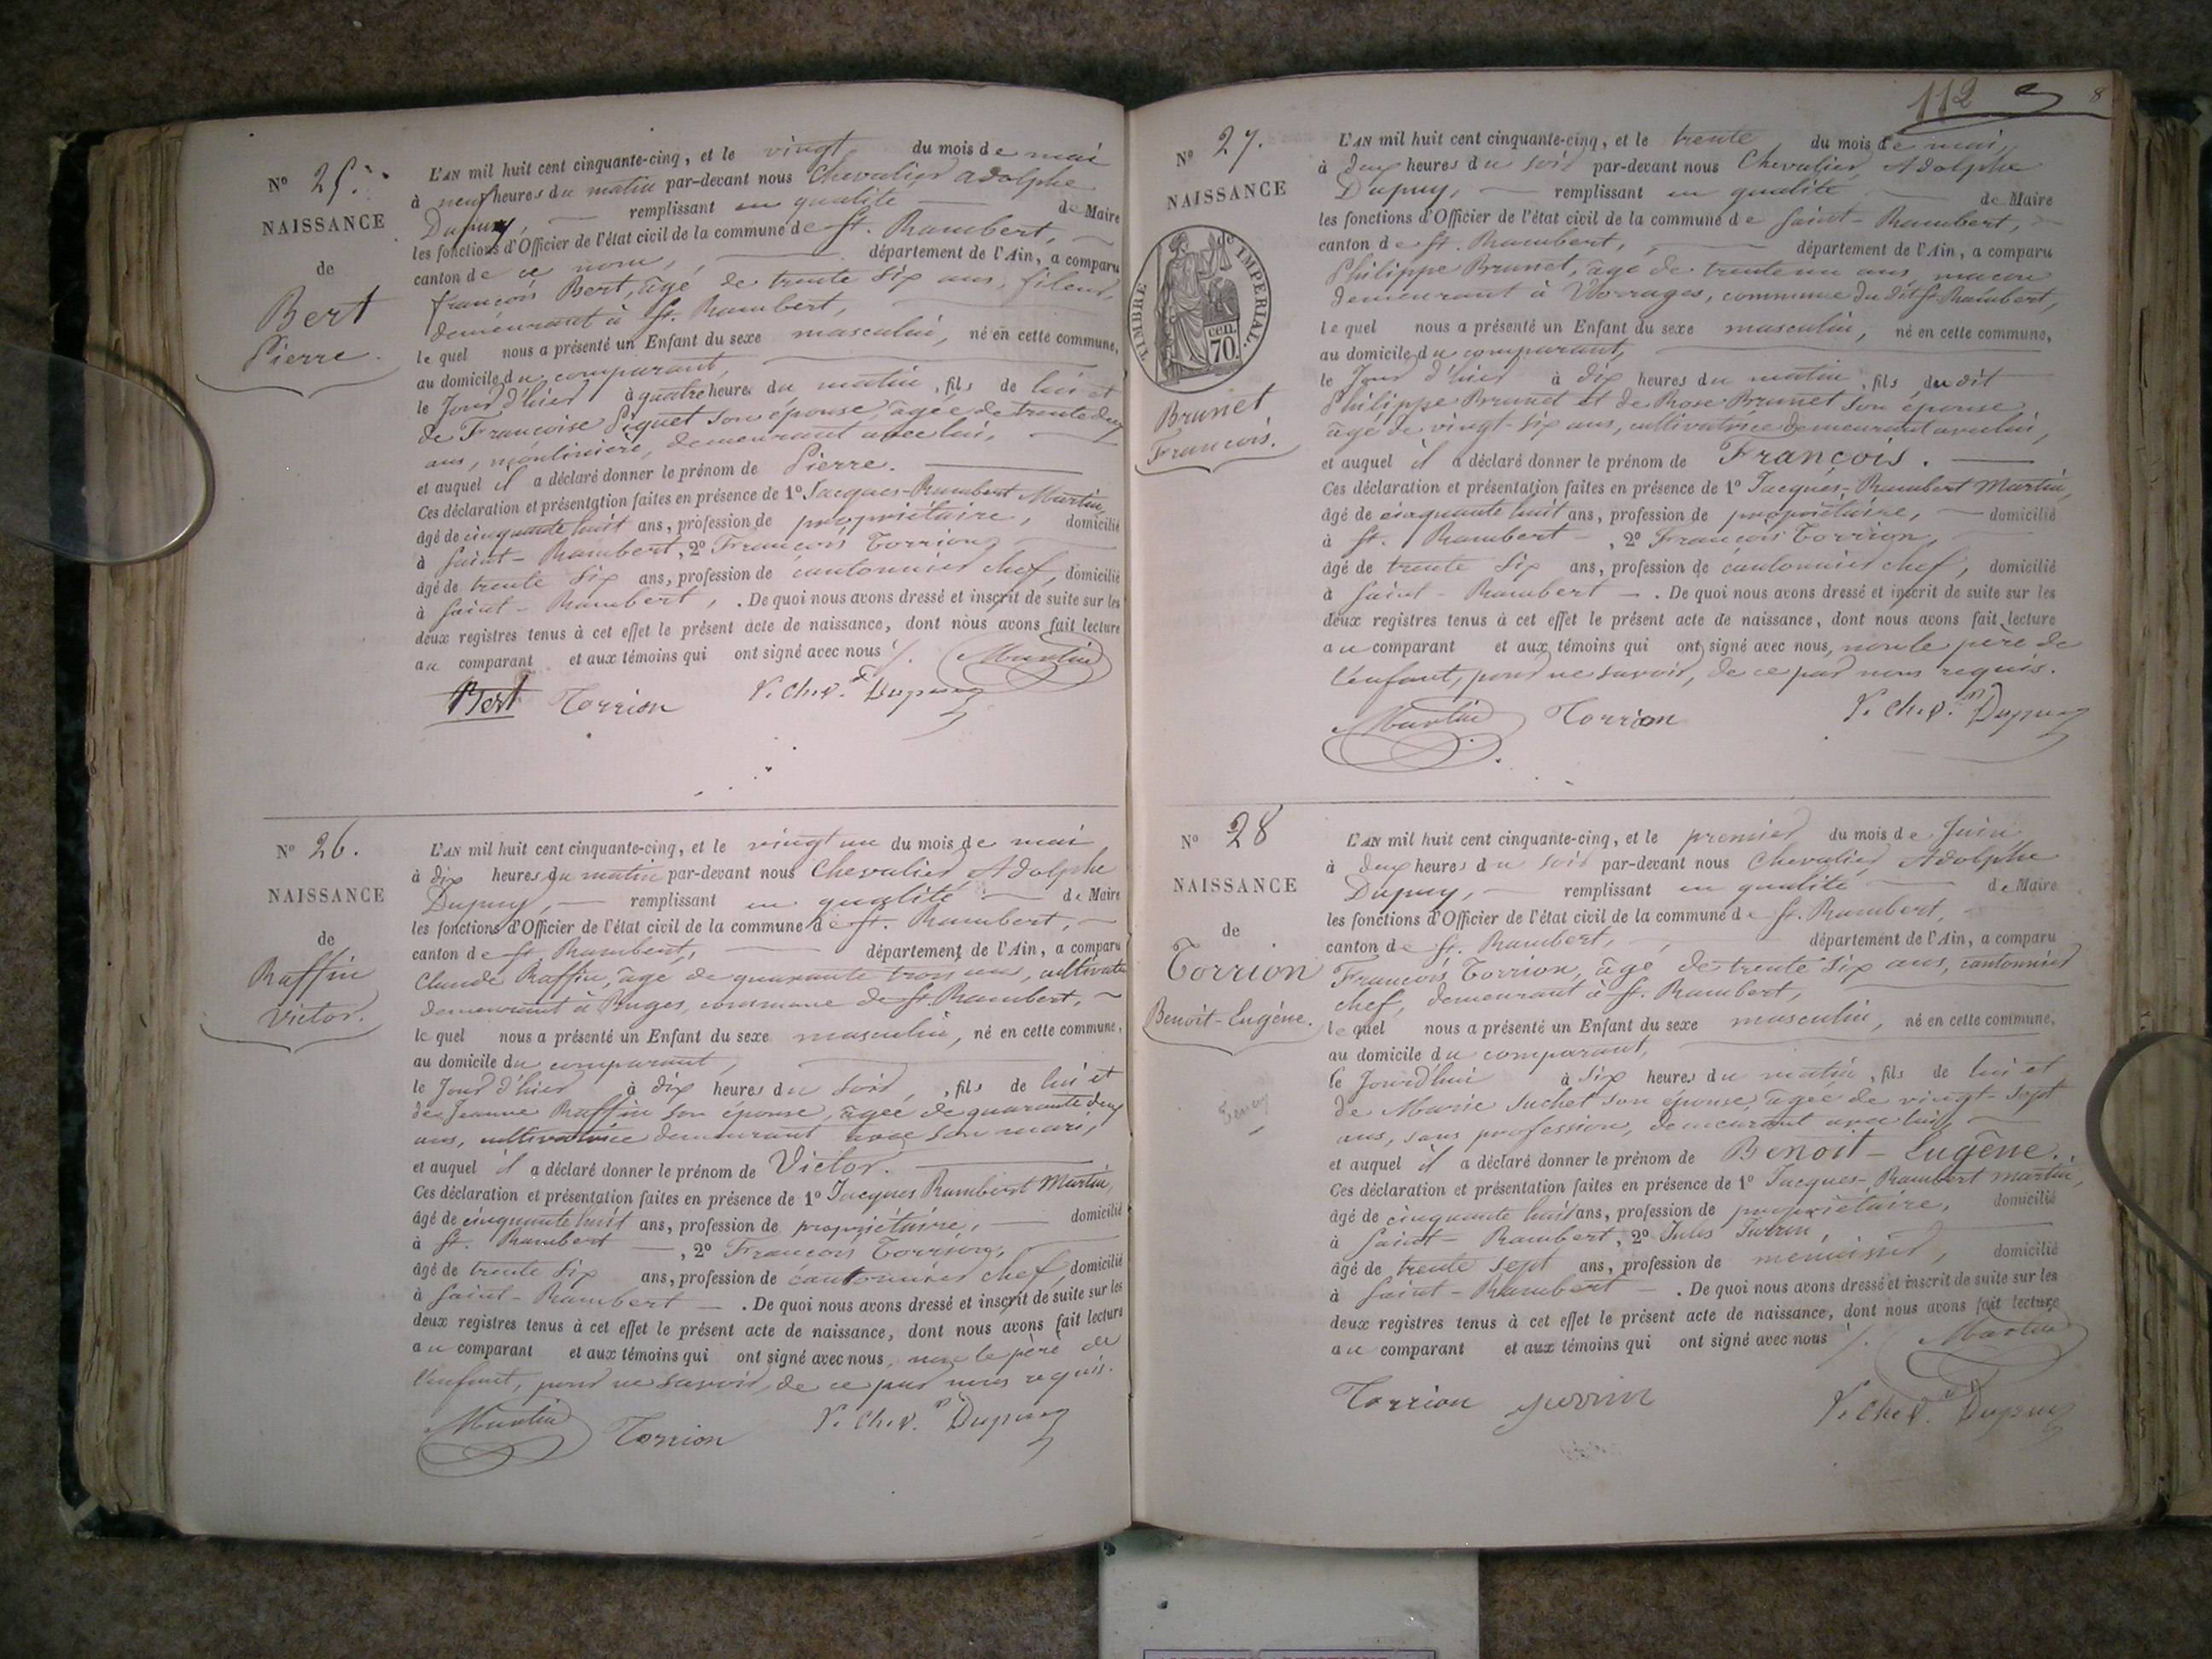 N° 25.
NAISSANCE
de
Bert
Pierre.
L'AN mil huit cent cinquante-cinq, et le vingt du mois de mai
à neuf heures du matin par-devant nous Chevalier Adolphe
Dupuy, remplissant en qualité de Maire
les fonctions d'Officier de l'état civil de la commune de St. Rambert,
canton de ce nom, département de l'Ain, a comparu
françois Bert, âgé de trente six ans, fileur,
demeurant à St. Rambert,
le quel nous a présenté un Enfant du sexe masculin, né en cette commune,
au domicile du comparant,
le Jour d'hier à quatre heures du matin, fils de lui et
de Françoise Piquet son épouse, âgée de trente deux
ans, moulinière, demeurant avec lui,
et auquel il a déclaré donner le prénom de Pierre.
Ces déclaration et présentation faites en présence de 1° Jacques-Rambert Martin,
âgé de cinquante huit ans, profession de propriétaire, domicilié
à Saint-Rambert, 2° François Torrion,
âgé de trente six ans, profession de cantonnier chef, domicilié
à Saint-Rambert, . De quoi nous avons dressé et inscrit de suite sur les
deux registres tenus à cet effet le présent acte de naissance, dont nous avons fait lecture
au comparant et aux témoins qui ont signé avec nous /. Martin
Bert Torrion V. Cher. Dupuy
N° 26.
NAISSANCE
de
Raffin
Victor.
L'AN mil huit cent cinquante-cinq, et le vingt un du mois de mai
à dix heures du matin par-devant nous Chevalier Adolphe
Dupuy, remplissant en qualité de Maire
les fonctions d'Officier de l'état civil de la commune de St. Rambert,
canton de St. Rambert, département de l'Ain, a comparu
Claude Raffin, âgé de quarante trois ans, cultivateur
demeurant à commune de St. Rambert,
le quel nous a présenté un Enfant du sexe masculin, né en cette commune,
au domicile du comparant,
le Jour d'hier à dix heures du soir, fils de lui et
de Jeanne Raffin son épouse, âgée de quarante deux
ans, cultivatrice demeurant avec son mari,
et auquel il a déclaré donner le prénom de Victor.
Ces déclaration et présentation faites en présence de 1° Jacques Rambert Martin,
âgé de cinquante huit ans, profession de propriétaire, domicilié
à St. Rambert, 2° François Torrion,
âgé de trente six ans, profession de cantonnier chef, domicilié
à Saint-Rambert . De quoi nous avons dressé et inscrit de suite sur les
deux registres tenus à cet effet le présent acte de naissance, dont nous avons fait lecture
au comparant et aux témoins qui ont signé avec nous, non le père de
l'enfant, pour ne savoir, de ce par nous requis.
Martin Torrion V. Cher. Dupuy
112 8
N° 27.
NAISSANCE
TIMBRE IMPERIAL
cen.
70.
Brunet
François.
L'AN mil huit cent cinquante-cinq, et le trente du mois de mai,
à deux heures du soir par-devant nous Chevalier Adolphe
Dupuy, remplissant en qualité de Maire
les fonctions d'Officier de l'état civil de la commune de Saint-Rambert,
canton de St. Rambert, département de l'Ain, a comparu
Philippe Brunet, âgé de trente un ans, maçon
demeurant à Vorrages, commune du dit St. Rambert,
le quel nous a présenté un Enfant du sexe masculin, né en cette commune,
au domicile du comparant,
le Jour d'hier à dix heures du matin, fils du dit
Philippe Brunet et de Rose Brunet son épouse
âgé de vingt-six ans, cultivatrice demeurant avec lui,
et auquel il a déclaré donner le prénom de François.
Ces déclaration et présentation faites en présence de 1° Jacques-Rambert Martin,
âgé de cinquante huit ans, profession de propriétaire, domicilié
à St. Rambert, 2° François Torrion,
âgé de trente six ans, profession de cantonnier chef, domicilié
à Saint-Rambert . De quoi nous avons dressé et inscrit de suite sur les
deux registres tenus à cet effet le présent acte de naissance, dont nous avons fait lecture
au comparant et aux témoins qui ont signé avec nous, non le père de
l'enfant, pour ne savoir, de ce par nous requis.
Martin Torrion V. Cher. Dupuy
N° 28
NAISSANCE
de
Torrion
Benoit-Eugène.
L'AN mil huit cent cinquante-cinq, et le premier du mois de Juin
à deux heures du soir par-devant nous Chevalier Adolphe
Dupuy, remplissant en qualité de Maire
les fonctions d'Officier de l'état civil de la commune de St. Rambert,
canton de St. Rambert, département de l'Ain, a comparu
François Torrion, âgé de trente six ans, cantonnier
chef, demeurant à St. Rambert,
le quel nous a présenté un Enfant du sexe masculin, né en cette commune,
au domicile du comparant,
le Jourd'hui à six heures du matin, fils de lui et
de Marie Suchet son épouse, âgée de vingt-sept
ans, sans profession, demeurant avec lui,
et auquel il a déclaré donner le prénom de Benoit-Eugène.
Ces déclaration et présentation faites en présence de 1° Jacques-Rambert Martin,
âgé de cinquante huit ans, profession de propriétaire, domicilié
à Saint-Rambert, 2° Jules
âgé de trente sept ans, profession de menuisier, domicilié
à Saint-Rambert . De quoi nous avons dressé et inscrit de suite sur les
deux registres tenus à cet effet le présent acte de naissance, dont nous avons fait lecture
au comparant et aux témoins qui ont signé avec nous /. Martin
Torrion V. Cher. Dupuy